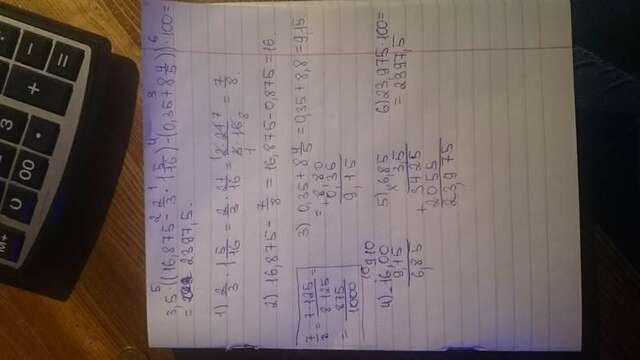 M+ 3
U 00 · + =
3,5 · ((16,875 - 2/3 · 1 5/16) - (0,35 + 8 4/5)) · 100 =
= 2397,5.
1) 2/3 · 1 5/16 = 2/3 · 21/16 = 2·21/3·16 = 7/8
2) 16,875 - 7/8 = 16,875 - 0,875 = 16.
7/8 = 7·125/8·125 =
= 875/1000
3) 0,35 + 8 4/5 = 0,35 + 8,8 = 9,15
= 8,80
+ 0,35
9,15
4) - 16,00
9,15
6,85
5) × 6,85
3,5
+ 3425
2055
23,975
6) 23,975 · 100 =
= 2397,5